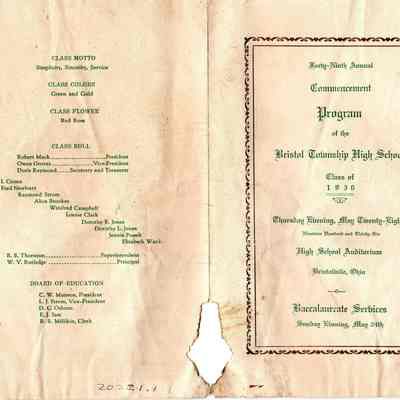 CLASS MOTTO
Simplicity, Sincerity, Service
CLASS COLORS
Green and Gold
CLASS FLOWER
Red Rose
CLASS ROLL
Robert Mack President
Owen Groves Vice-President
Doris Raymond Secretary and Treasurer
Ford Newbury
Raymond Strom
Alton Stroker
Winifred Campbell
Lennie Clark
Dorothy E. Jones
Dorothy L. Jones
Jennie Pounds
Elizabeth Wack
R. R. Thornton Superintendent
W. V. Rutledge Principal
BOARD OF EDUCATION
C. W. Matteson, President
L. J. Ferree, Vice-President
D. G. Osborn
E. J. Sott
R. S. Milliken, Clerk
20221.1
Forty-Ninth Annual
Commencement
Program
of the
Bristol Township High Schoo
Class of
1936
Thursday Evening, May Twenty-Eigh
Nineteen Hundred and Thirty-Six
High School Auditorium
Bristolville, Ohio
Baccalaureate Services
Sunday Evening, May 24th